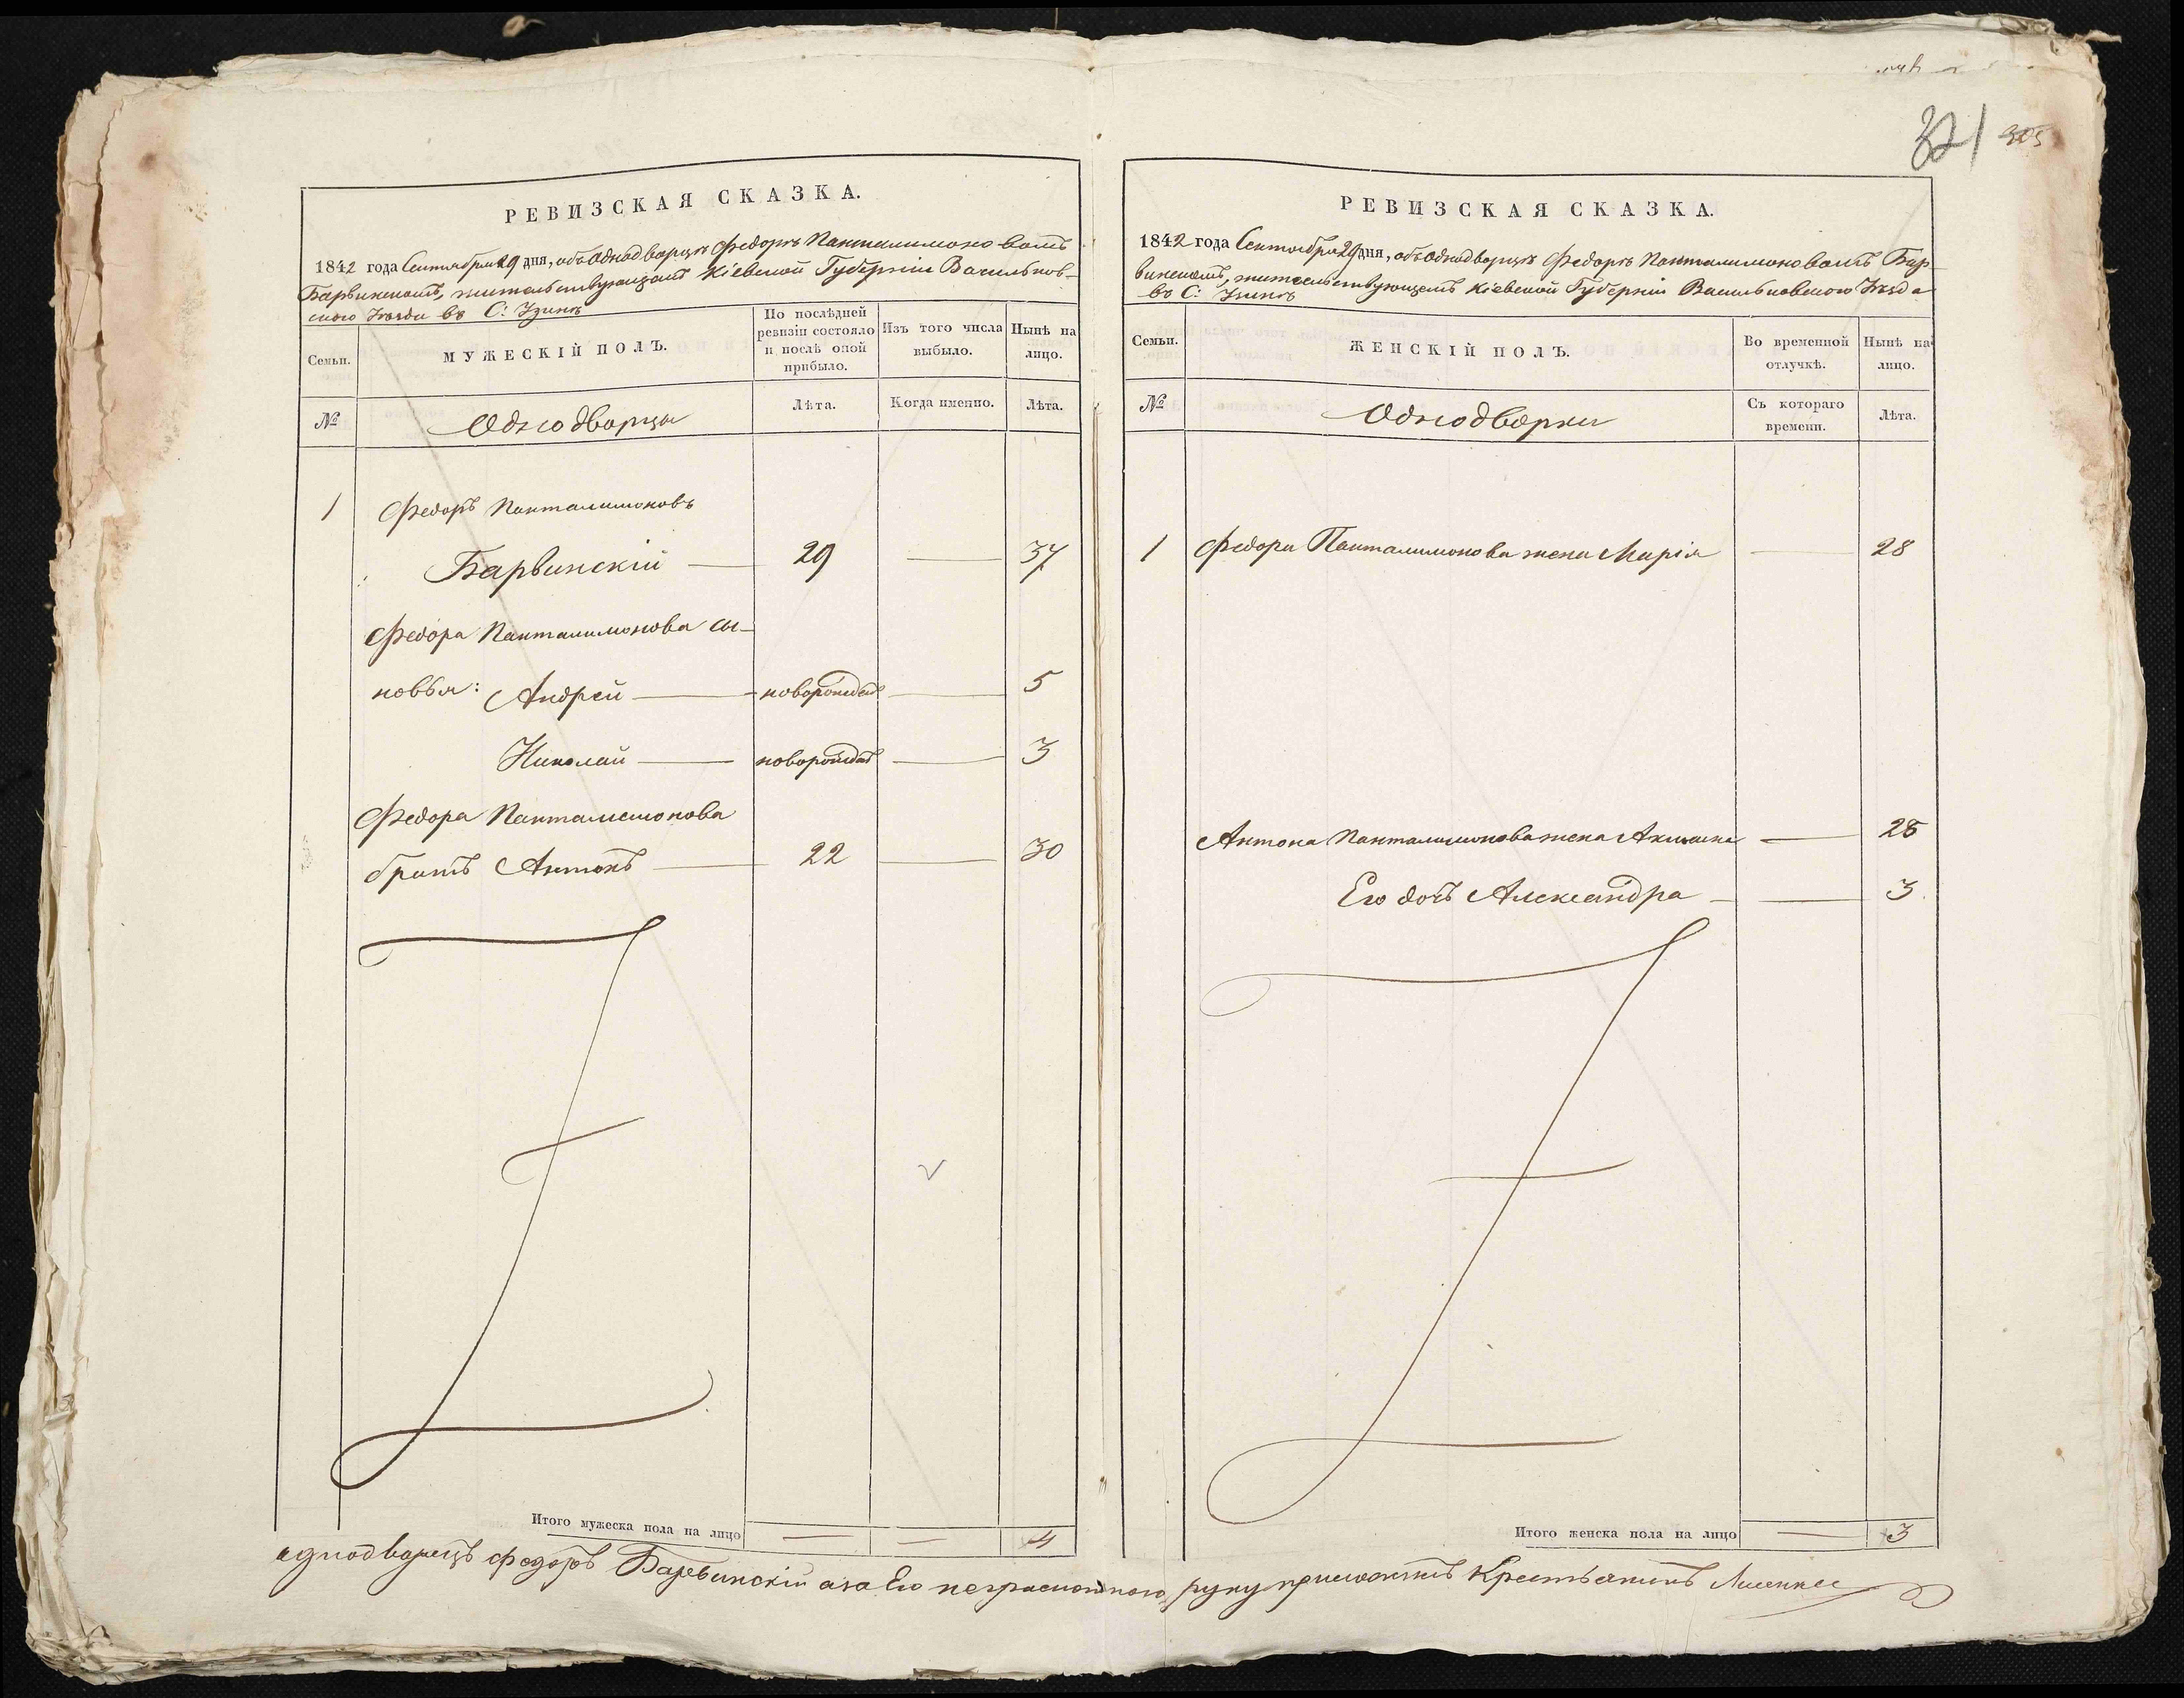 321 305
РЕВИЗСКАЯ СКАЗКА.
1842 года Сентября 29 дня, объ Однодворцѣ Федорѣ Панталимоновомъ
Барвинскомъ, жительствующемъ Кіевской Губерніи Васильков-
скаго Уѣзда въ С: Узинѣ
Семьи.
МУЖЕСКІЙ ПОЛЪ.
По послѣдней ревизіи состояло и послѣ оной прибыло.
Изъ того числа выбыло.
Нынѣ на лицо.
№
Однодворцы
Лѣта.
Когда именно.
Лѣта.
1 Федоръ Панталимоновъ
Барвинскій — 29 — 37
Федора Панталимонова сы-
новья: Андрей — новорожден — 5
Николай — новорожден — 3
Федора Панталимонова
братъ Антонъ — 22 — 30
Итого мужеска пола на лицо — — 4
РЕВИЗСКАЯ СКАЗКА.
1842 года Сентября 29 дня, объ Однодворцѣ Федорѣ Панталимоновомъ Бар-
винскомъ, жительствующемъ Кіевской Губерніи Васильковскаго Уѣзда
въ С: Узинѣ
Семьи.
ЖЕНСКІЙ ПОЛЪ.
Во временной отлучкѣ.
Нынѣ на лицо.
№
Однодворки
Съ котораго времени.
Лѣта.
1 Федора Панталимонова жена Марія — 28
Антона Панталимонова жена — 28
Его дочь Александра — 3
Итого женска пола на лицо — 3
аднодварецъ Федоръ Барвинскій а за Его неграмотнаго руку приложилъ Крестьянинъ